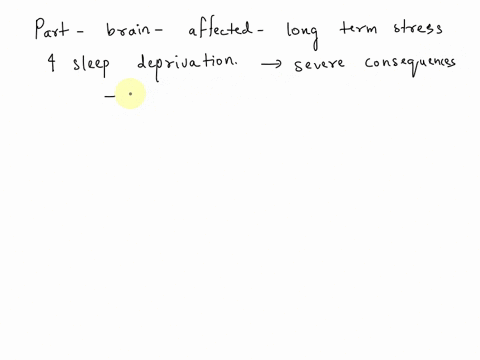 Part - brain - affected - long term stress
& sleep deprivation. → severe consequences
-